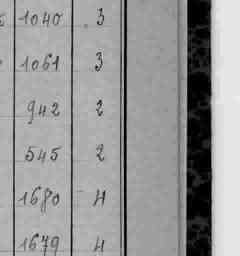 1040 3
1061 3
942 2
545 2
1680 4
1679 4